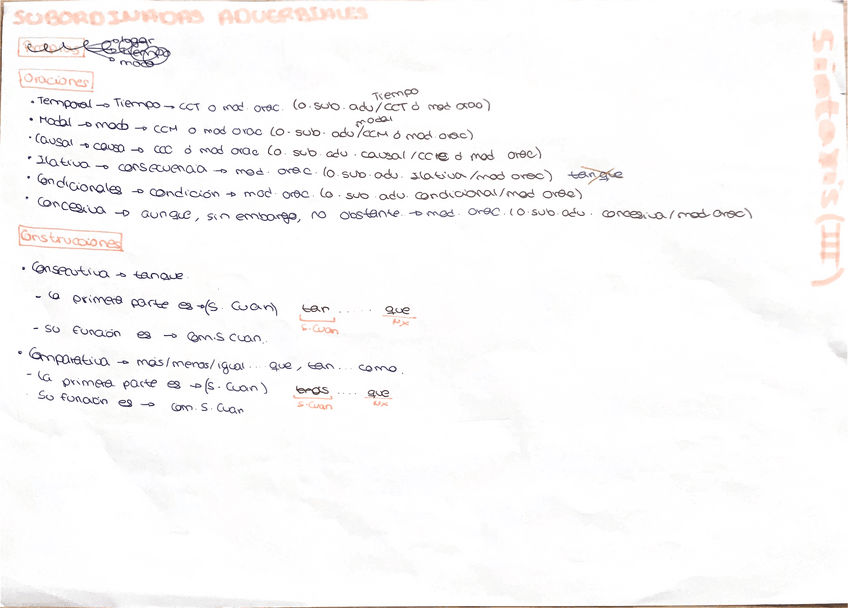 SUBORDINADAS ADVERBIALES
Sintaxis (III)
lugar
tiempo
modo
Oraciones
Tiempo
• Temporal → Tiempo → CCT o mod. orac. (o. sub. adv/CCT ó mod orac)
modal
• Modal → modo → CCM o mod orac (o. sub. adv/CCM ó mod. orac)
• Causal → causa → CCC ó mod orac (o. sub. adv. causal/CCC ó mod orac)
• Ilativa → consecuencia → mod. orac. (o. sub. adv. Ilativa/mod orac) tanque
• Condicionales → condición → mod. orac. (o. sub adv. condicional/mod orac)
• Concesiva → aunque, sin embargo, no obstante. → mod. orac. (o. sub. adv. concesiva/mod. orac)
Construcciones
• Consecutiva → tanque.
- La primera parte es → (S. Cuan) tan ..... que
S. Cuan Nx
- Su función es → Com. S Cuan.
• Comparativa → más/menos/igual... que, tan... como.
- La primera parte es → (S. Cuan) .... que
S. Cuan Nx
Su función es → Com. S. Cuan